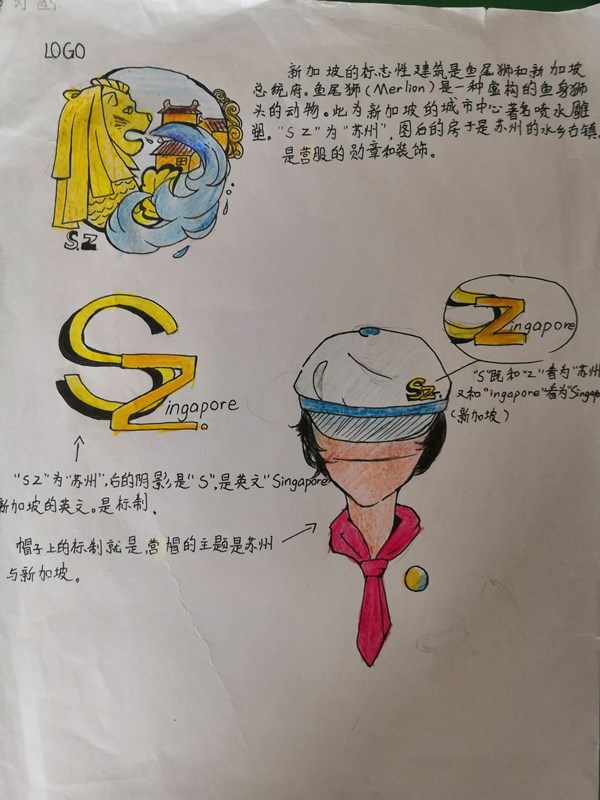 LOGO
新加坡的标志性建筑是鱼尾狮和新加坡
总统府。鱼尾狮(Merlion)是一种虚构的鱼身狮
头的动物。此为新加坡的城市中心著名喷水雕
塑。"S Z"为"苏州",图后的房子是苏州的水乡古镇.
是营服的勋章和装饰。
S.Z
SZingapore
SZ.
SZingapore.
"S"既和"Z"看为"苏州
又和"ingapore"看为"Singap
(新加坡)
"SZ"为"苏州",后的阴影是"S",是英文"Singapore
新加坡的英文。是标制.
帽子上的标制就是,营帽的主题是苏州
与新加坡。